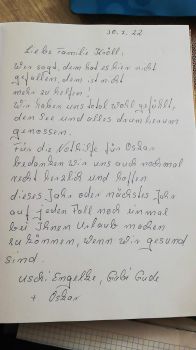 30.1.22
Liebe Familie Kröll,
Wer sagt, dem hat es hier nicht
gefallen, dem ist nicht
mehr zu helfen!
Wir haben uns total wohl gefühlt,
den See und alles drum herum
genossen.
Für die Nothilfe für Oskar
bedanken wir uns auch nochmal
recht herzlich und hoffen
dieses Jahr oder nächstes Jahr
auf jeden Fall noch einmal
bei Ihnen Urlaub machen
zu können, wenn wir gesund
sind.
Uschi Engelke, Gabi Gude
+ Oskar